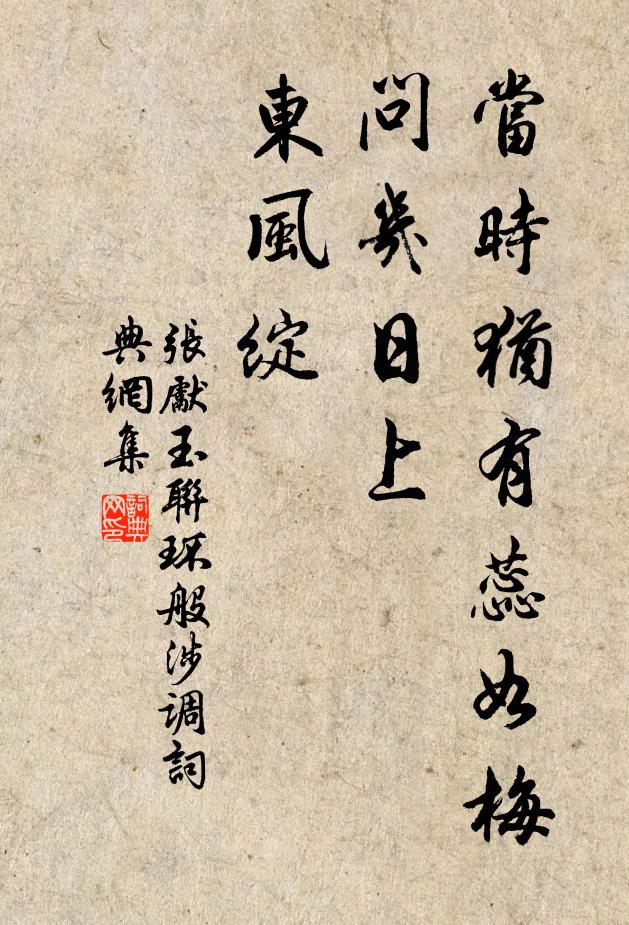 當時猶有蕊如梅
問幾日上
東風綻
張獻玉聯環般涉調詞
典網集
詞典網印